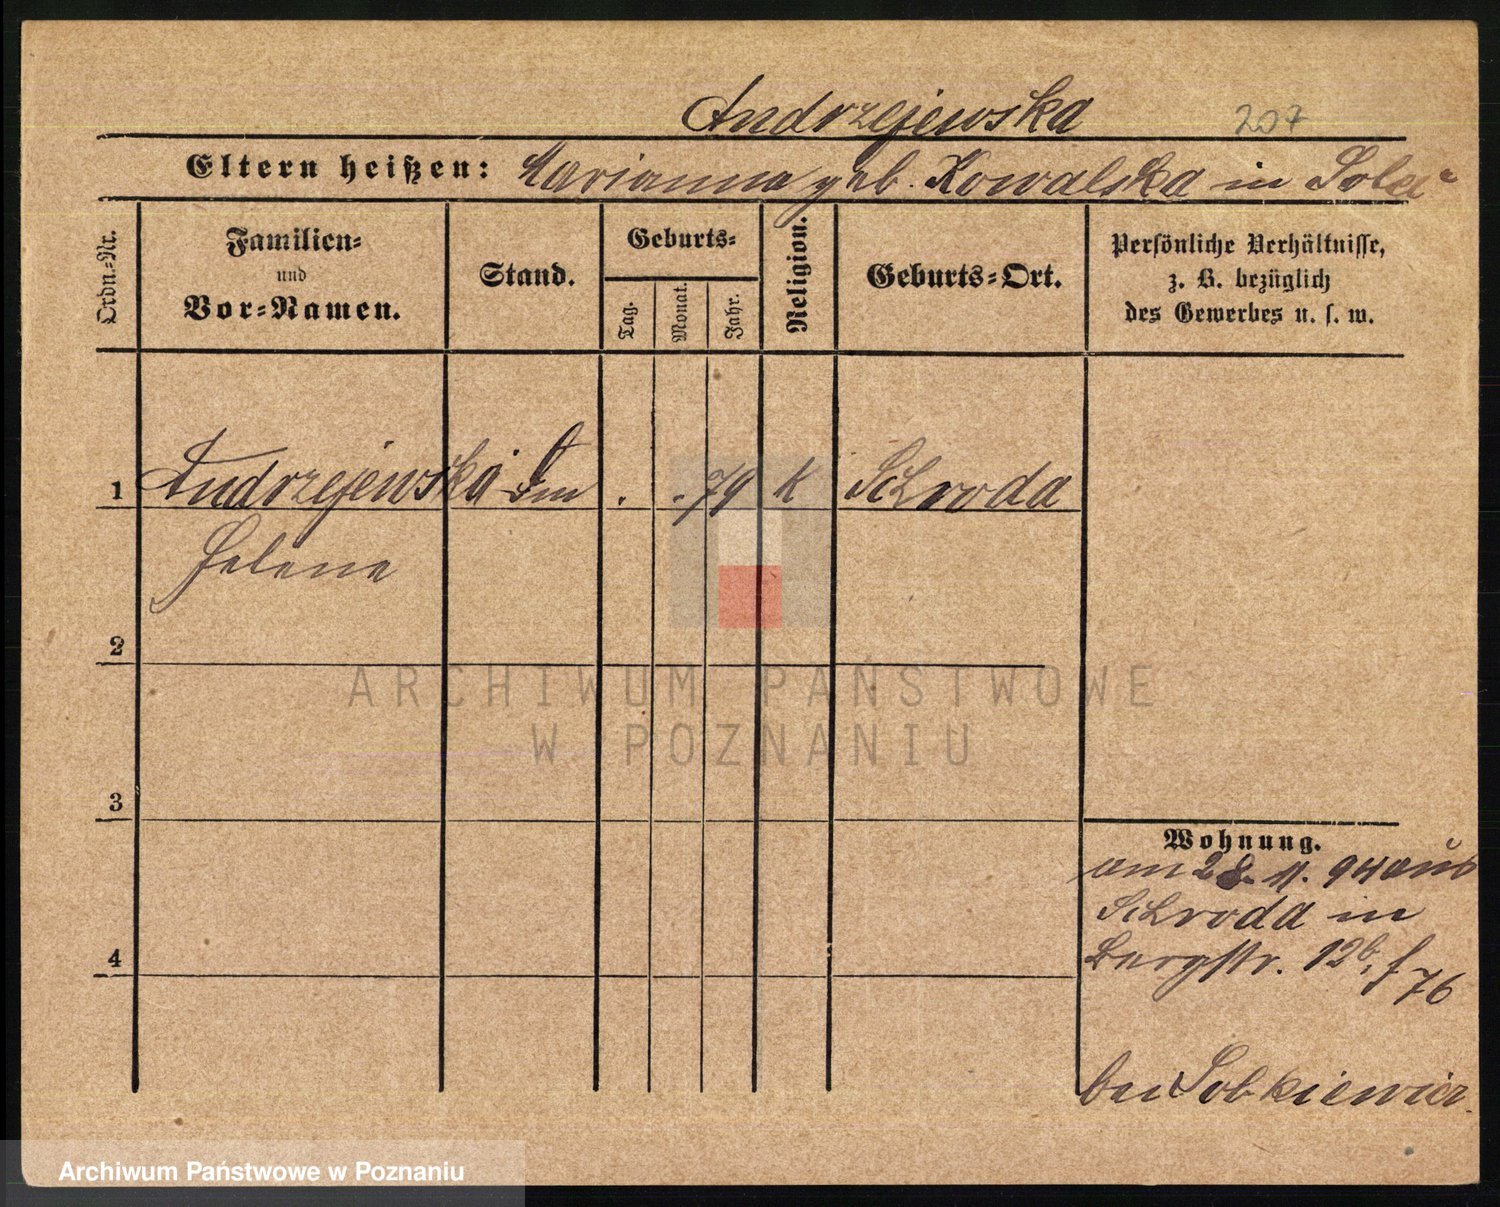 Andrzejewska 207
Eltern heißen: Marianna geb. Kowalska in Solec
Ordn.=Nr.
Familien=
und
Vor=Namen.
Stand.
Geburts=
Tag.
Monat.
Jahr.
Religion.
Geburts=Ort.
Persönliche Verhältnisse,
z. B. bezüglich
des Gewerbes u. s. w.
1 Andrzejewska . . 79 K Schroda
Helene
2
3
4
Wohnung.
am 28. 11. 94 aus
Schroda in
Bergstr. 12b,
76
bei Sobkiewicz.
ARCHIWUM PAŃSTWOWE
W POZNANIU
Archiwum Państwowe w Poznaniu